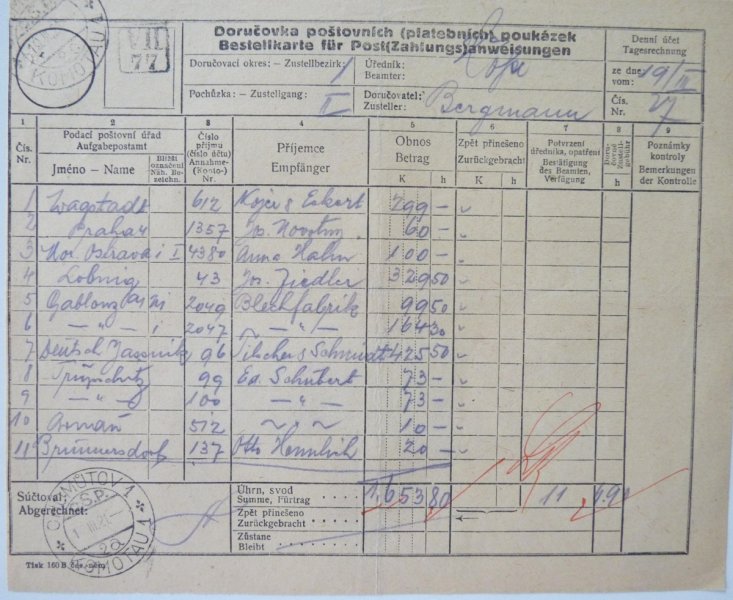 KOMOTAU
VII
77
Doručovka poštovních (platebních) poukázek
Bestellkarte für Post(Zahlungs)anweisungen
Doručovací okres: – Zustellbezirk: 1
Úředník:
Beamter:
Pochůzka: – Zustellgang: II
Doručovatel:
Zusteller: Bergmann
Denní účet
Tagesrechnung
ze dne
vom: 19/III
Čís.
Nr. 27
1 2 3 4 5 6 7 8 9
Čís.
Nr.
Podací poštovní úřad
Aufgabepostamt
Jméno – Name
Bližší
označení
Näh. Be-
zeichn.
Číslo
příjmu
(číslo účtu)
Annahme-
(Konto-)
Nr.
Příjemce
Empfänger
Obnos
Betrag
K h
Zpět přineseno
Zurückgebracht
K h
Potvrzení
úředníka, opatření
Bestätigung
des Beamten,
Verfügung
h
Poznámky
kontroly
Bemerkungen
der Kontrolle
1 Wagstadt 612 299 –
2 Praha 1357 Jos. Novotny 60 –
3 Mor. Ostrava I 4380 Anna Hahn 100 –
4 Lobnig 43 Jos. Fiedler 329 50
5 Gablonz 2049 Blechfabrik 99 50
6 – " – 2047 – " – 164 30
7 Deutsch Jassnik 96 & Schmidt 425 50
8 99 Ed. Schubert 73 –
9 – " – 100 – " – 73 –
10 Arnau 512 10 –
11 Brunnersdorf 137 Otto 20 –
Súčtoval:
Abgerechnet:
Úhrn, svod
Summe, Fürtrag 1,653 80 11
Zpět přineseno
Zurückgebracht
Zůstane
Bleibt
CHOMÚTOV 1
S.P.
2a
KOMOTAU 1
Tisk 160 B čes.-něm.